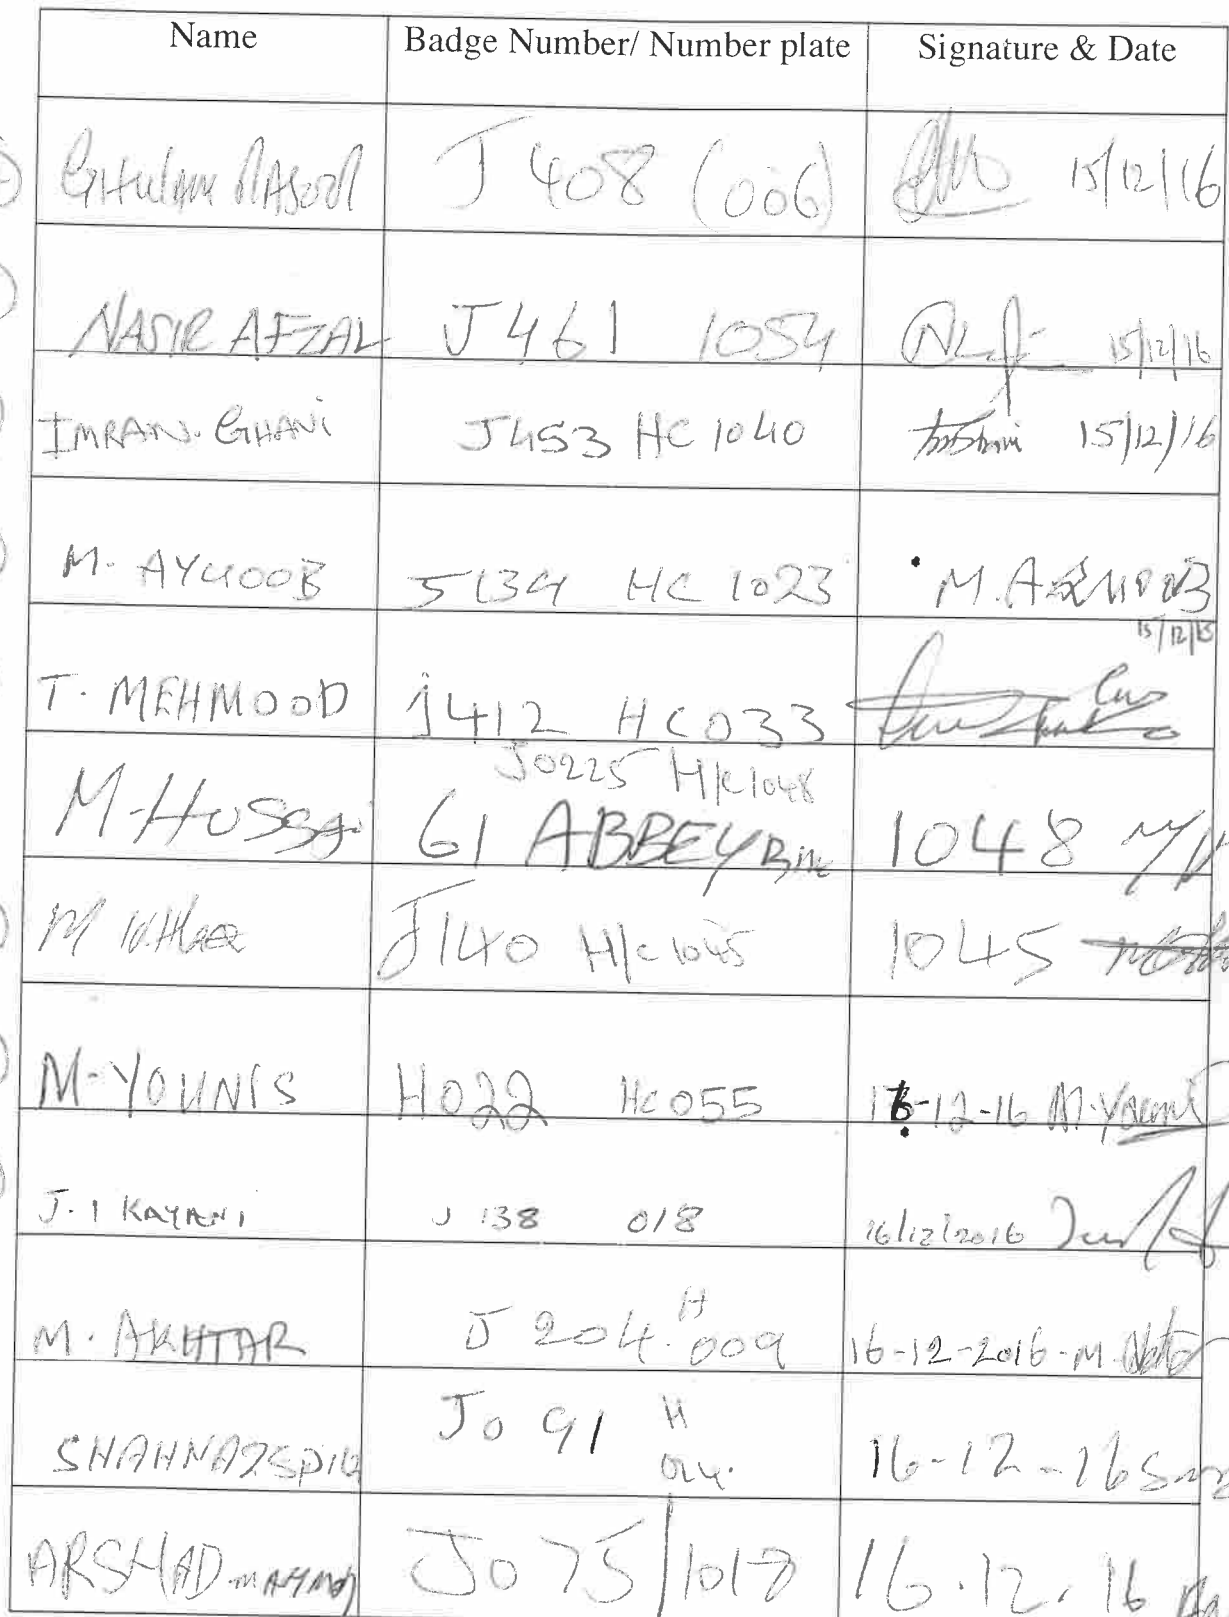 Name Badge Number/ Number plate Signature & Date
Ghulam Rasool J 408 (006) 15/12/16
NASIR AFZAL J461 1054 15/12/16
IMRAN. GHANi J453 HC 1040 15/12/16
M. AYUOOB 5134 HC 1023 M.
15/12/15
T. MEHMOOD J412 HC033
J0225 H/C1048
M. Hossai 61 ABBEY 1048
M J140 H/C1045 1045
M. YOUNIS H022 HC055 -12-16 M. Younis
J. I KAYANI J 138 018 16/12/2016
H
M. AKHTAR J 204. 009 16-12-2016 - M.
J0 91 H
16-12-16
ARSHAD J075/1018 16.12.16